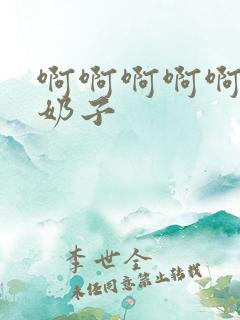 啊啊啊啊啊
奶子
李世全
未经同意禁止转载